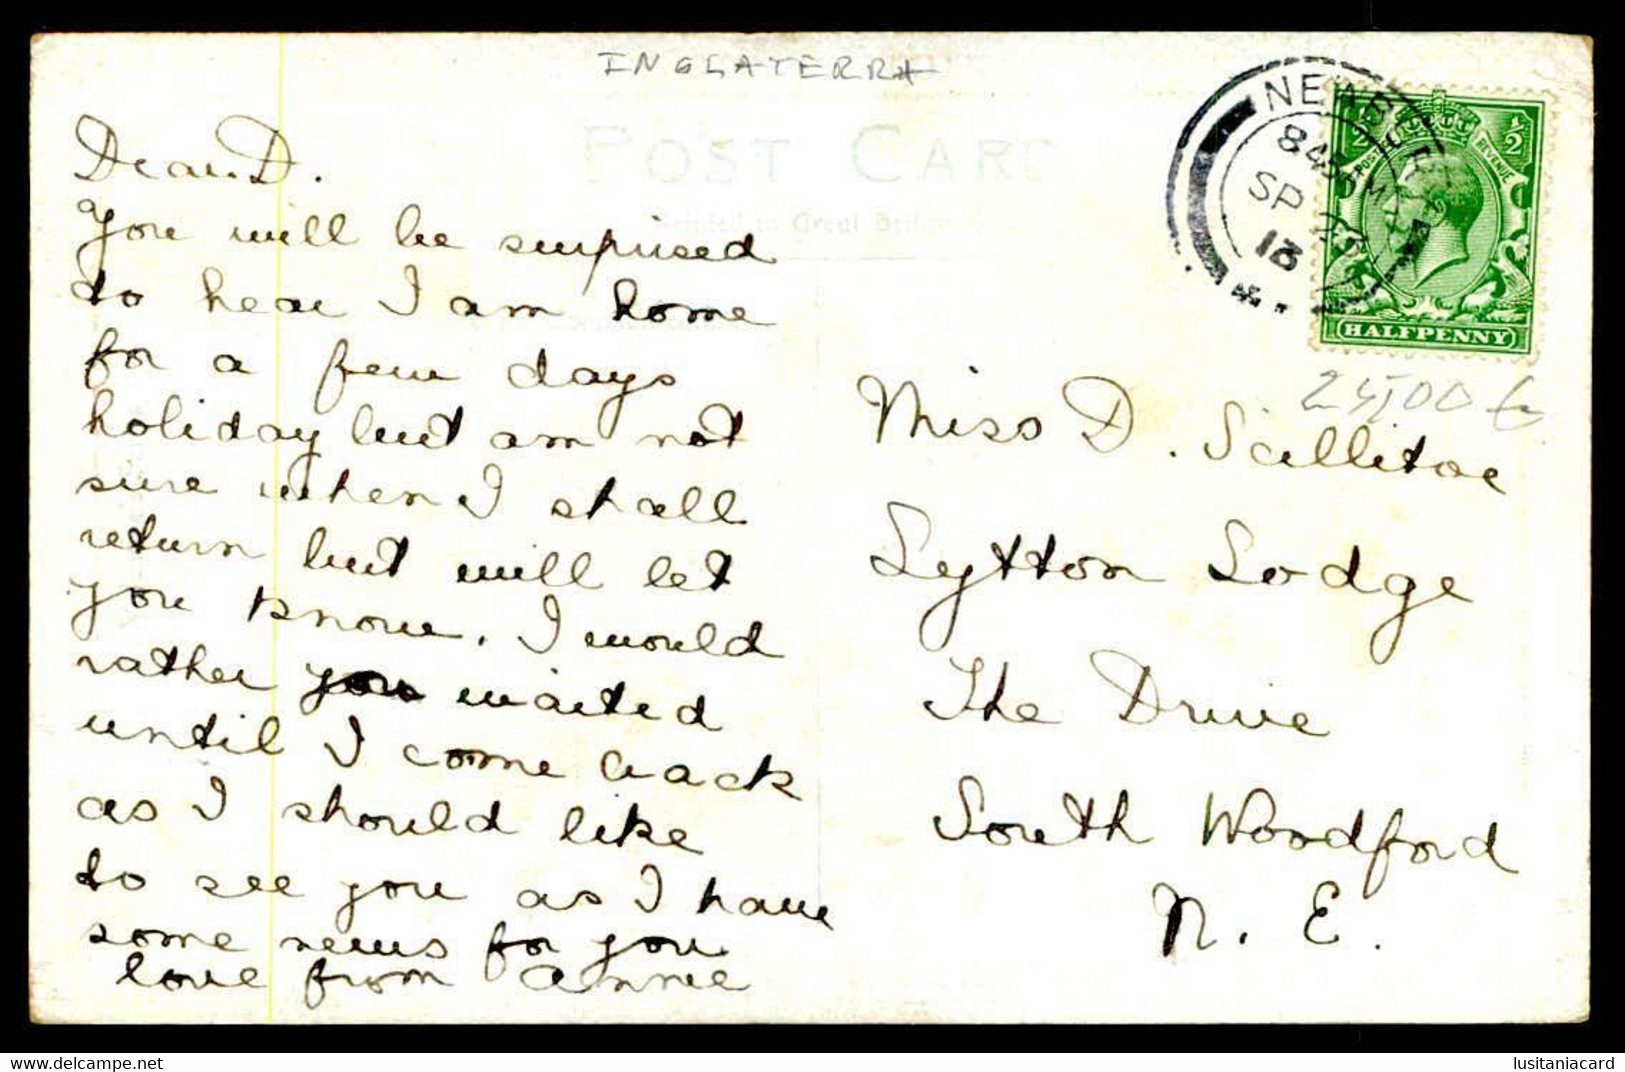 INGLATERRA
POST CARD
Printed in Great Britain
Dear D.
You will be surprised
to hear I am home
for a few days
holiday but am not
sure when I shall
return but will let
you know. I would
rather you waited
until I come back
as I should like
to see you as I have
some news for you
love from Annie
8 45 PM
SP 25
13
½ ½
POSTAGE REVENUE
HALFPENNY
Miss D. Scillitoe
Lytton Lodge
The Drive
South Woodford
N. E.
www.delcampe.net
lusitaniacard